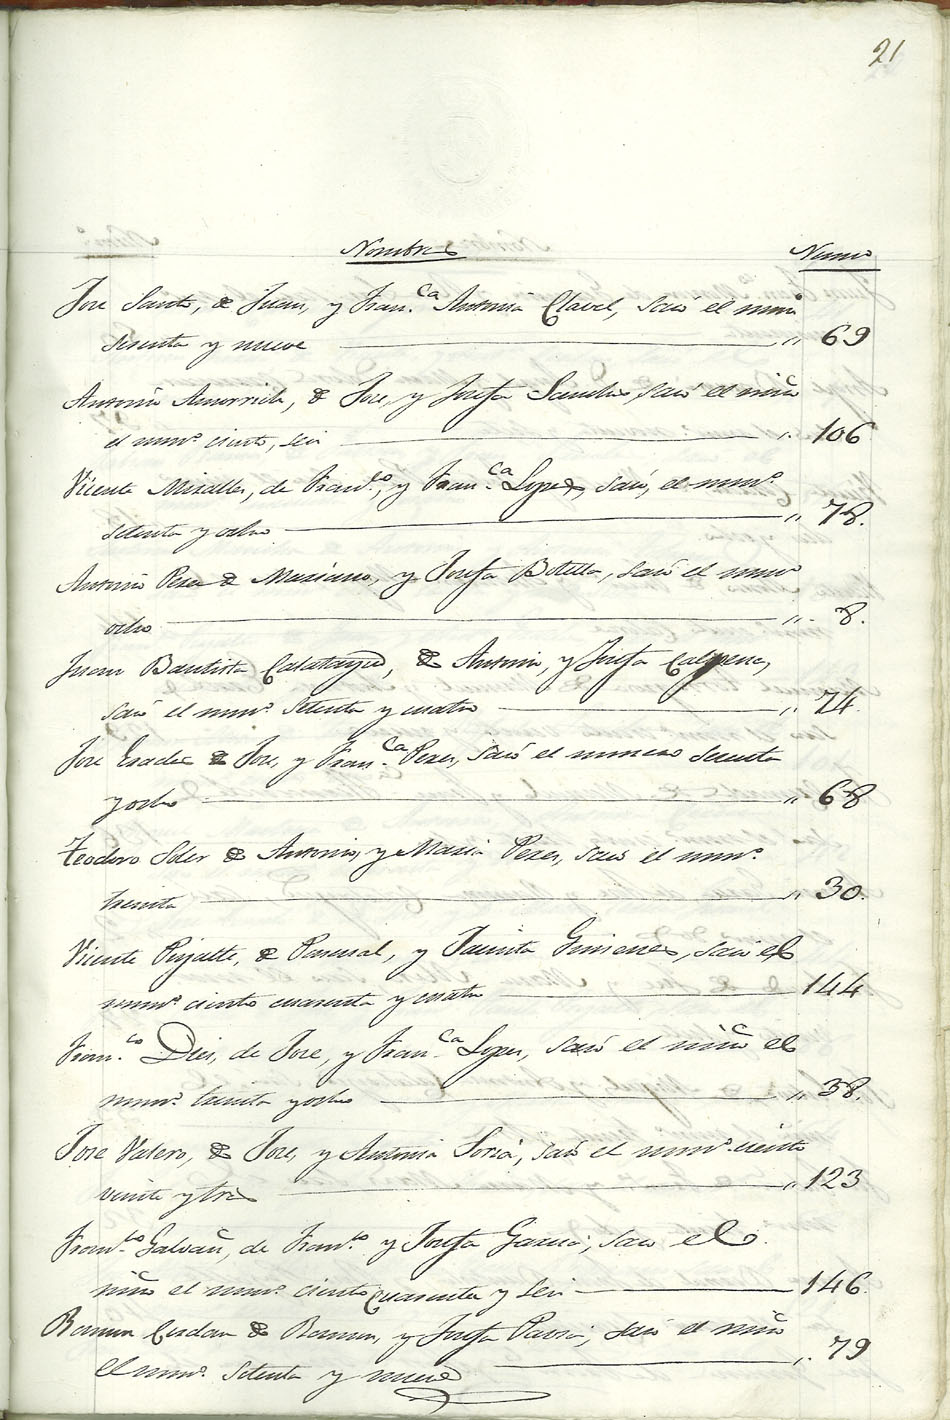 21
Nombres Numo
Jose Santo, de Juan, y Fran.ca Antonia Clavel, saco el numo
sesenta y nueve " 69
Antonio Amorrich, de Jose, y Josefa Sancho, saco el niño
el num.o ciento, seis " 106
Vicente Miralles, de Fran.co, y Fran.ca Lopes, saco, el num.o
setenta y ocho " 78.
Antonio Peres de Mariano, y Josefa Botella, saco el numo
ocho " 8.
Juan Bautista Calatayud, de Antonio, y Josefa Calpena,
saco el num.o setenta y cuatro " 74.
Jose de Jose, y Fran.ca Peres, saco el numero sesenta
y ocho " 68
Teodoro Soler de Antonio, y Maria Peres, saco el num.o
treinta " 30.
Vicente de Pascual, y Jacinta Gimenes, saco el
num.o ciento cuarenta y cuatro 144
Fran.co de Jose, y Fran.ca Lopes, saco el niño el
num.o treinta y ocho " 38.
Jose Valero, de Jose, y Antonia Soria, saco el num.o ciento
veinte y tres " 123
Fran.co Galvañ, de Fran.co y Josefa Garcia, saco el
niño el num.o ciento cuarenta y seis 146
Ramon Cerdan de Ramon, y Josefa saco el niño
el num.o setenta y nueve " 79